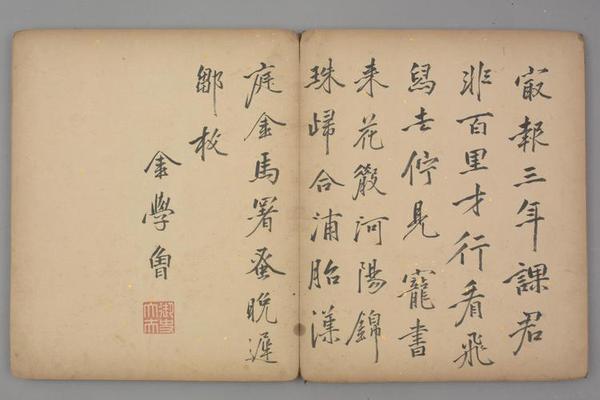 㝡報三年課君
非百里才行看飛
舄去佇見 寵書
来花簇河陽錦
珠歸合浦胎漢
庭金馬署蚤晚遲
鄒枚
金學曾